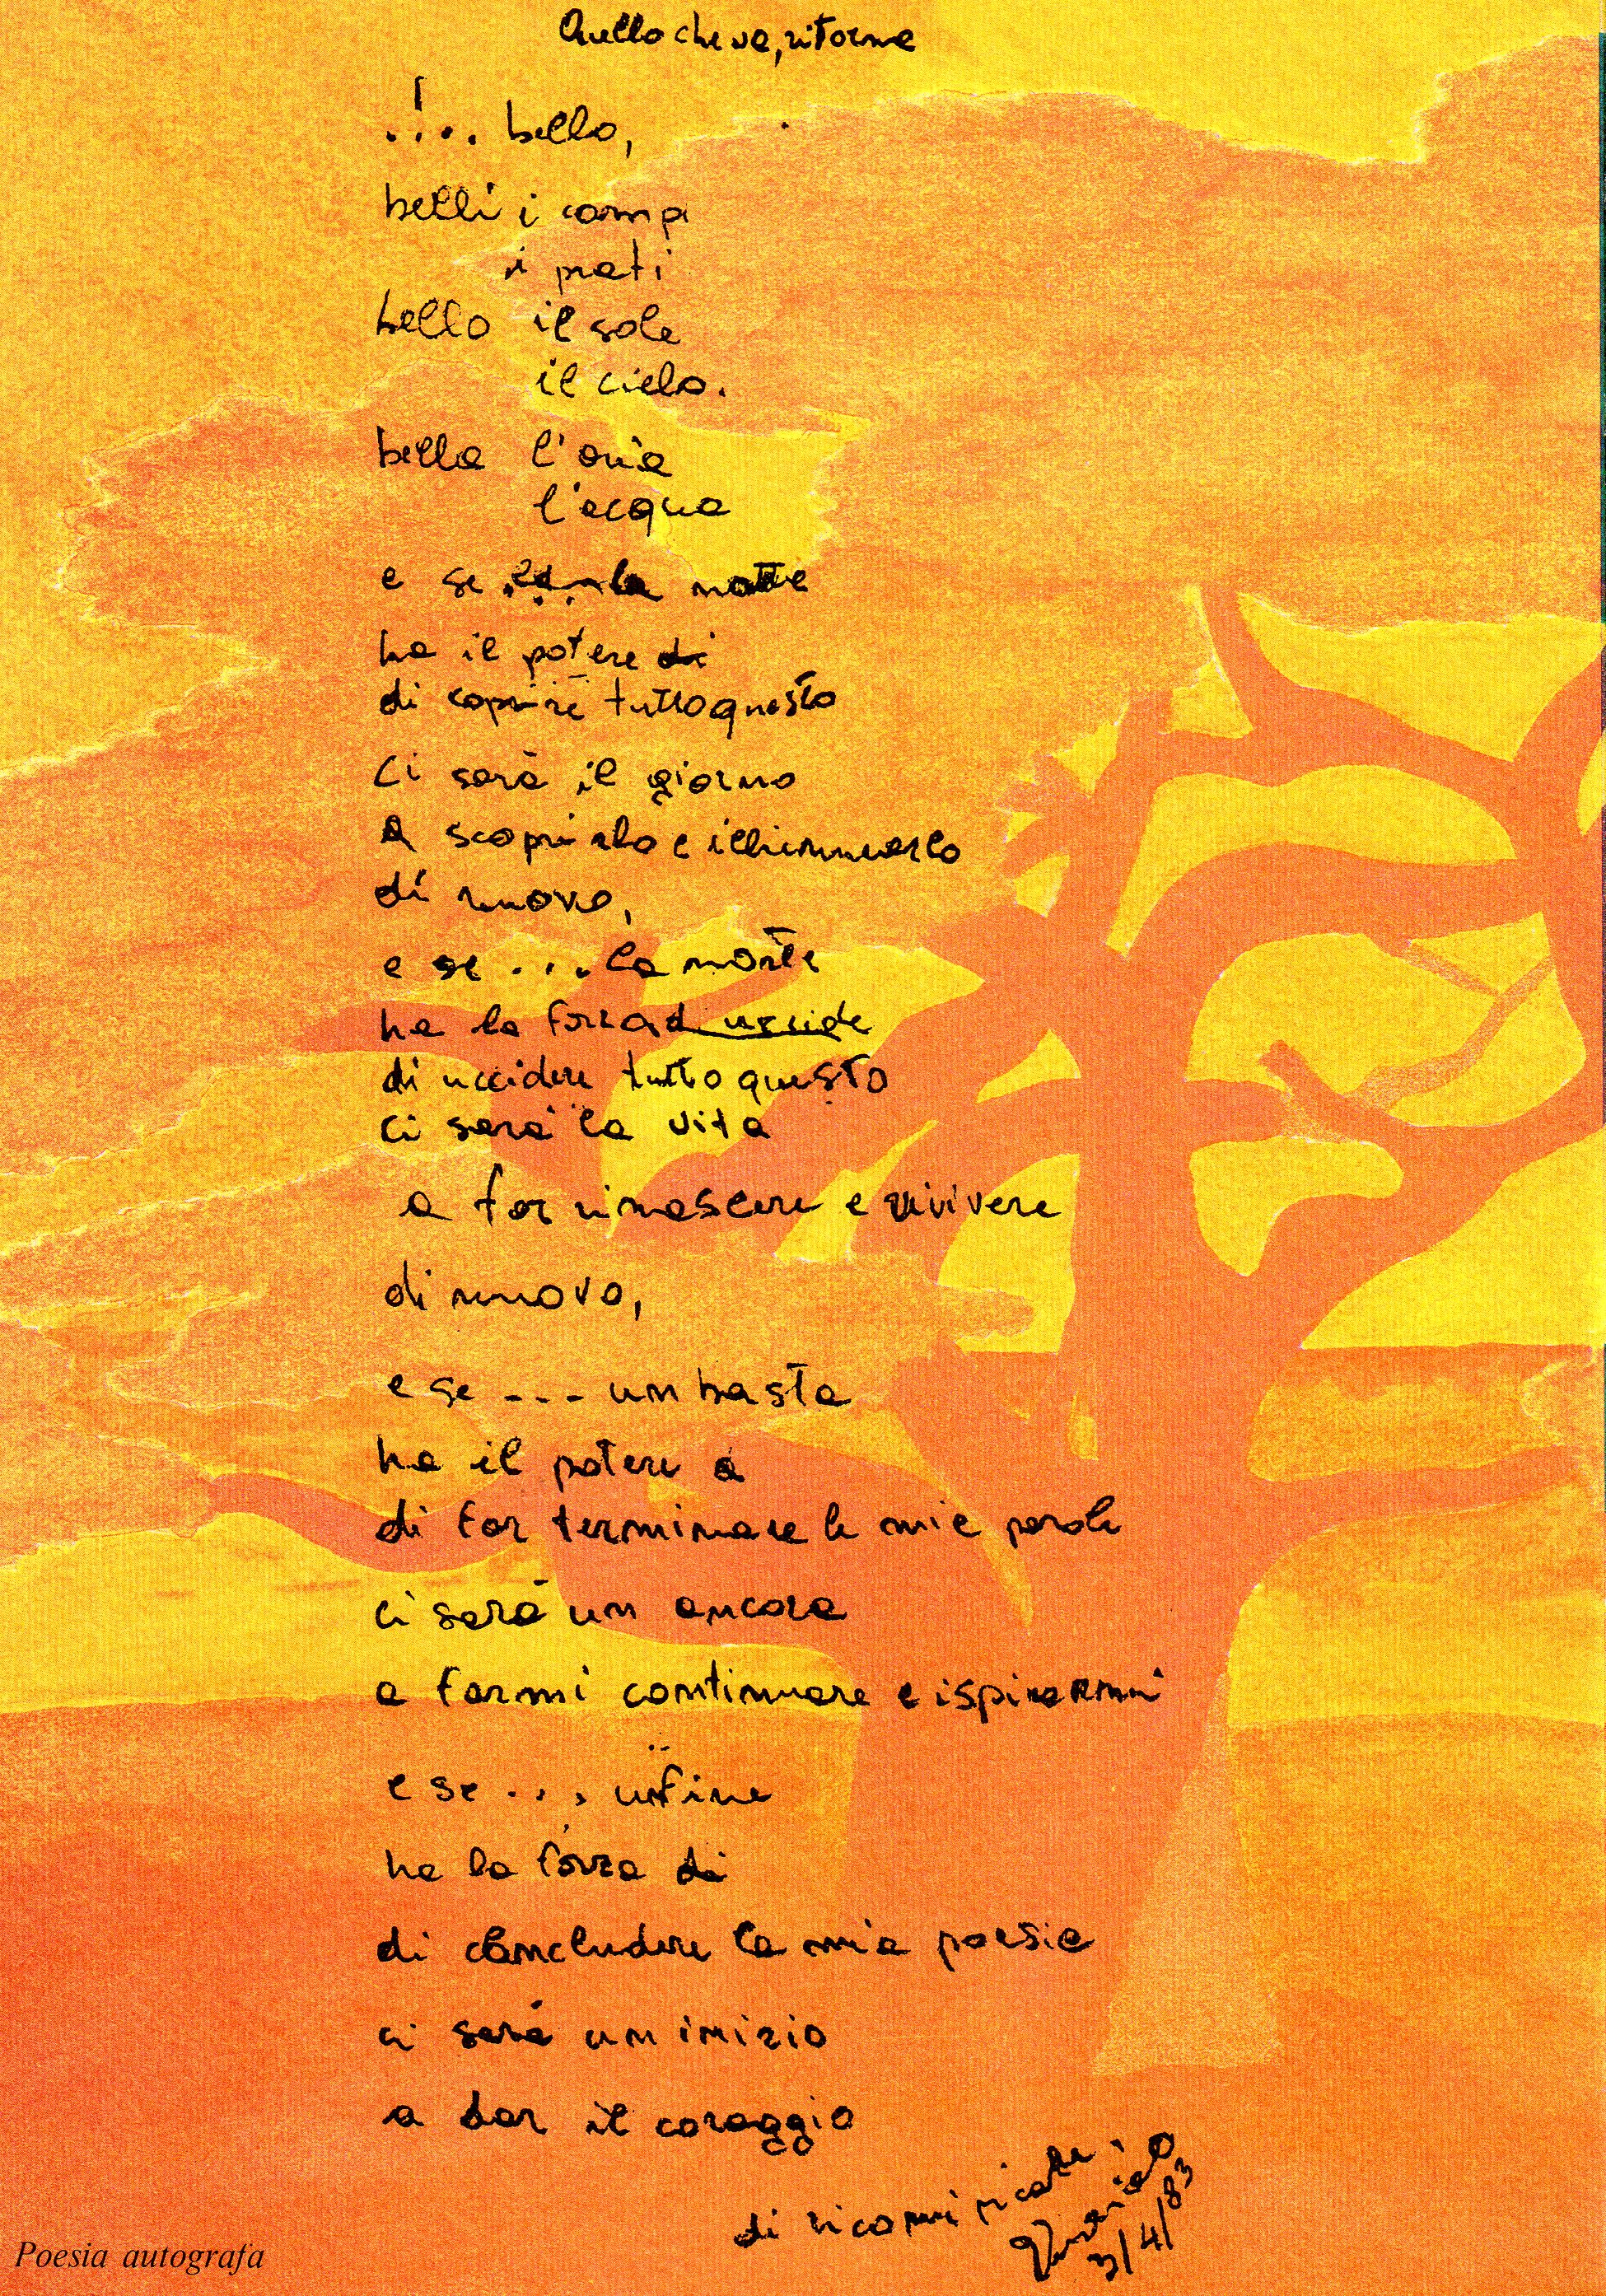 Quello che va, ritorna
!.... bello,
belli i campi
i prati
bello il sole
il cielo.
bella l'aria
l'acqua
e se ... la notte
ha il potere di
di coprire tutto questo
Ci sarà il giorno
A scoprirlo e illuminarlo
di nuovo,
e se ... la morte
ha la forza d uccide
di uccidere tutto questo
ci sarà la vita
a far rinascere e rivivere
di nuovo,
e se --- un basta
ha il potere a
di far terminare le mie parole
ci sarà un ancora
a farmi continuare e ispirarmi
e se ... un fine
ha la forza di
di concludere la mia poesia
ci sarà un inizio
a dar il coraggio
di ricominciare
3/4/83
Poesia autografa